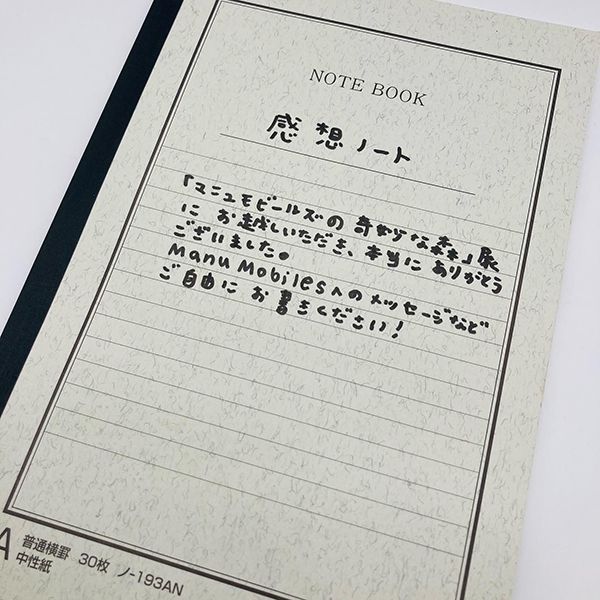 NOTE BOOK
感想ノート
「マニュモビールズの奇妙な森」展
に お越しいただき、本当に ありがとう
ございました。
Manu Mobilesへのメッセージなど
ご自由に お書きください!
A 普通横罫 30枚 ノ-193AN
中性紙